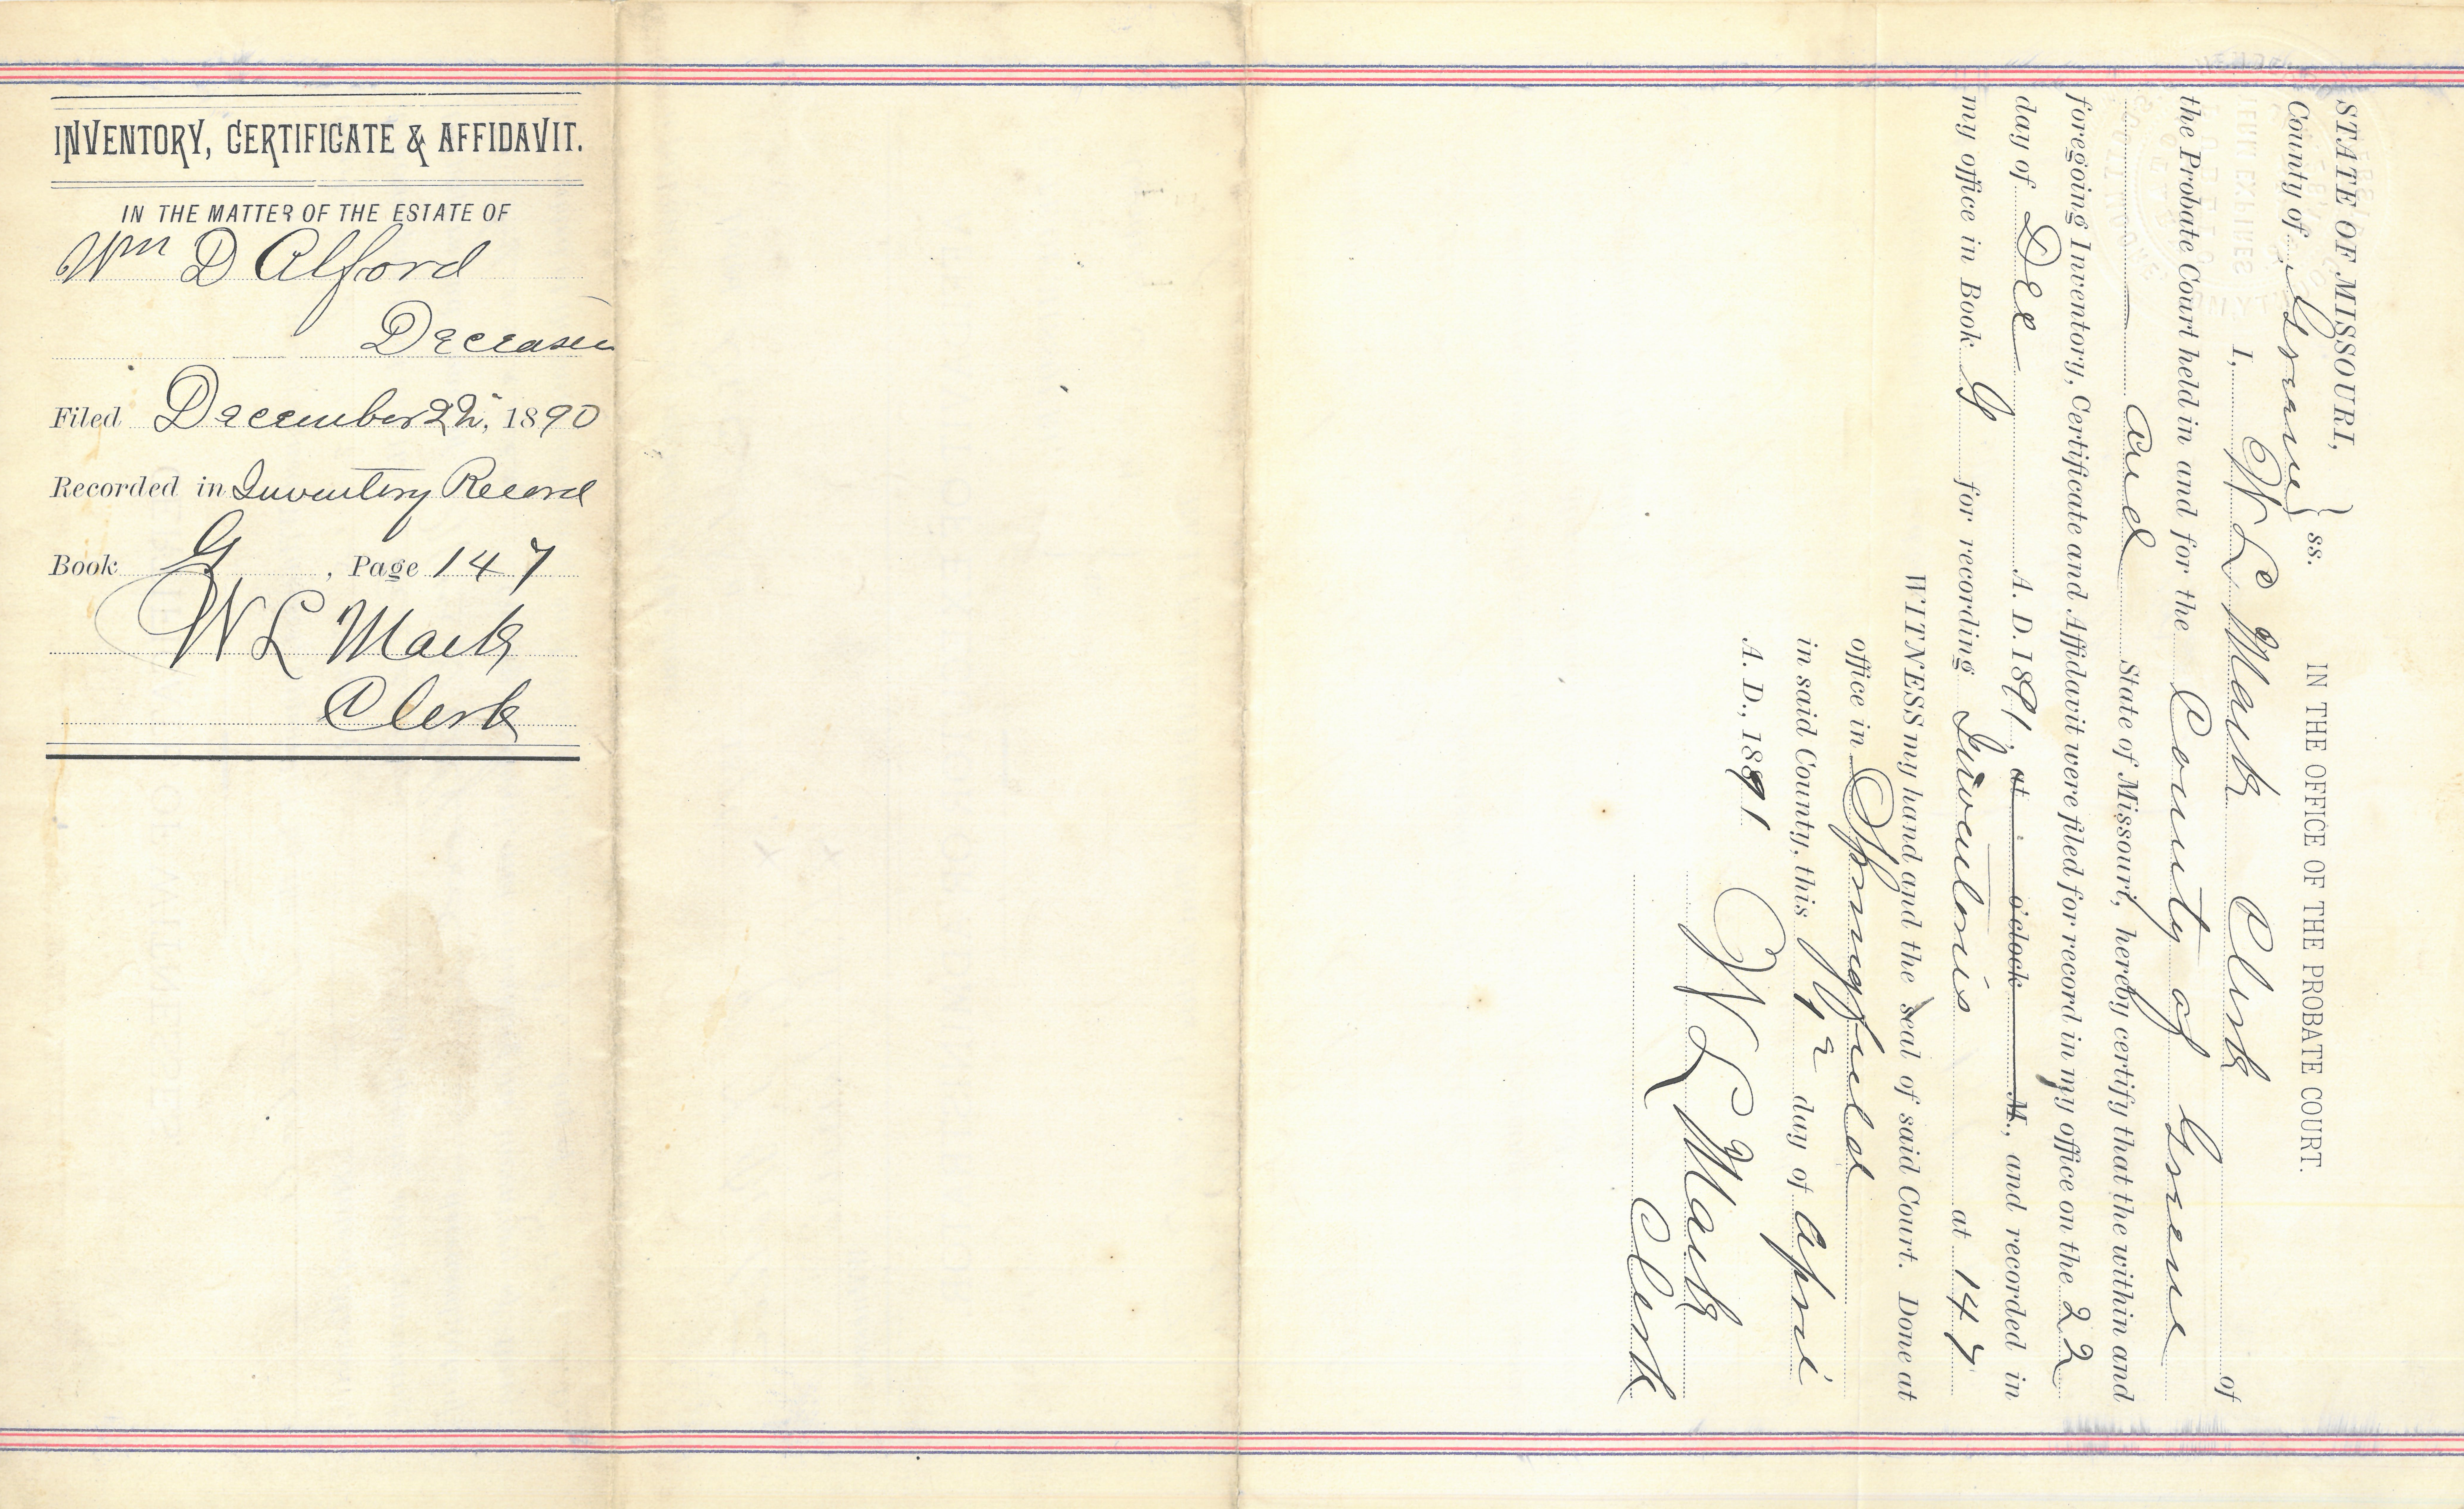 INVENTORY, CERTIFICATE & AFFIDAVIT.
IN THE MATTER OF THE ESTATE OF
Wm D Alford
Deceased
Filed December 22, 1890
Recorded in Inventory Record
Book G, Page 147
W L Mack
Clerk
STATE OF MISSOURI,
County of Greene } ss. IN THE OFFICE OF THE PROBATE COURT.
I, W L Mack Clerk of
the Probate Court held in and for the County of Greene
and State of Missouri, hereby certify that the within and
foregoing Inventory, Certificate and Affidavit were filed for record in my office on the 22
day of Dec A. D. 1891, at o'clock M., and recorded in
my office in Book G for recording Inventories at 147
WITNESS my hand and the seal of said Court. Done at
office in Springfield
in said County, this day of April
A. D., 1891
W L Mack
Clerk